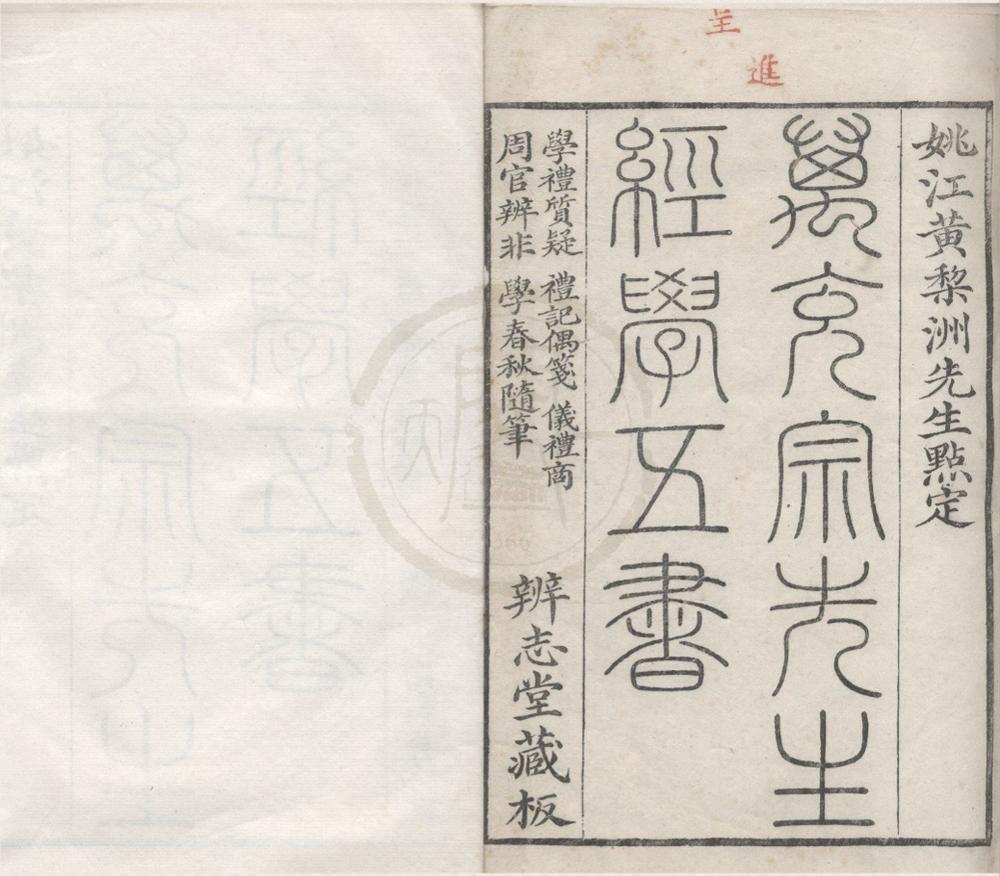 呈
進
姚江黃棃洲先生點定
萬充宗先生
經學五書
學禮質疑 禮記偶箋 儀禮商
周官辨非 學春秋隨筆
辨志堂藏板